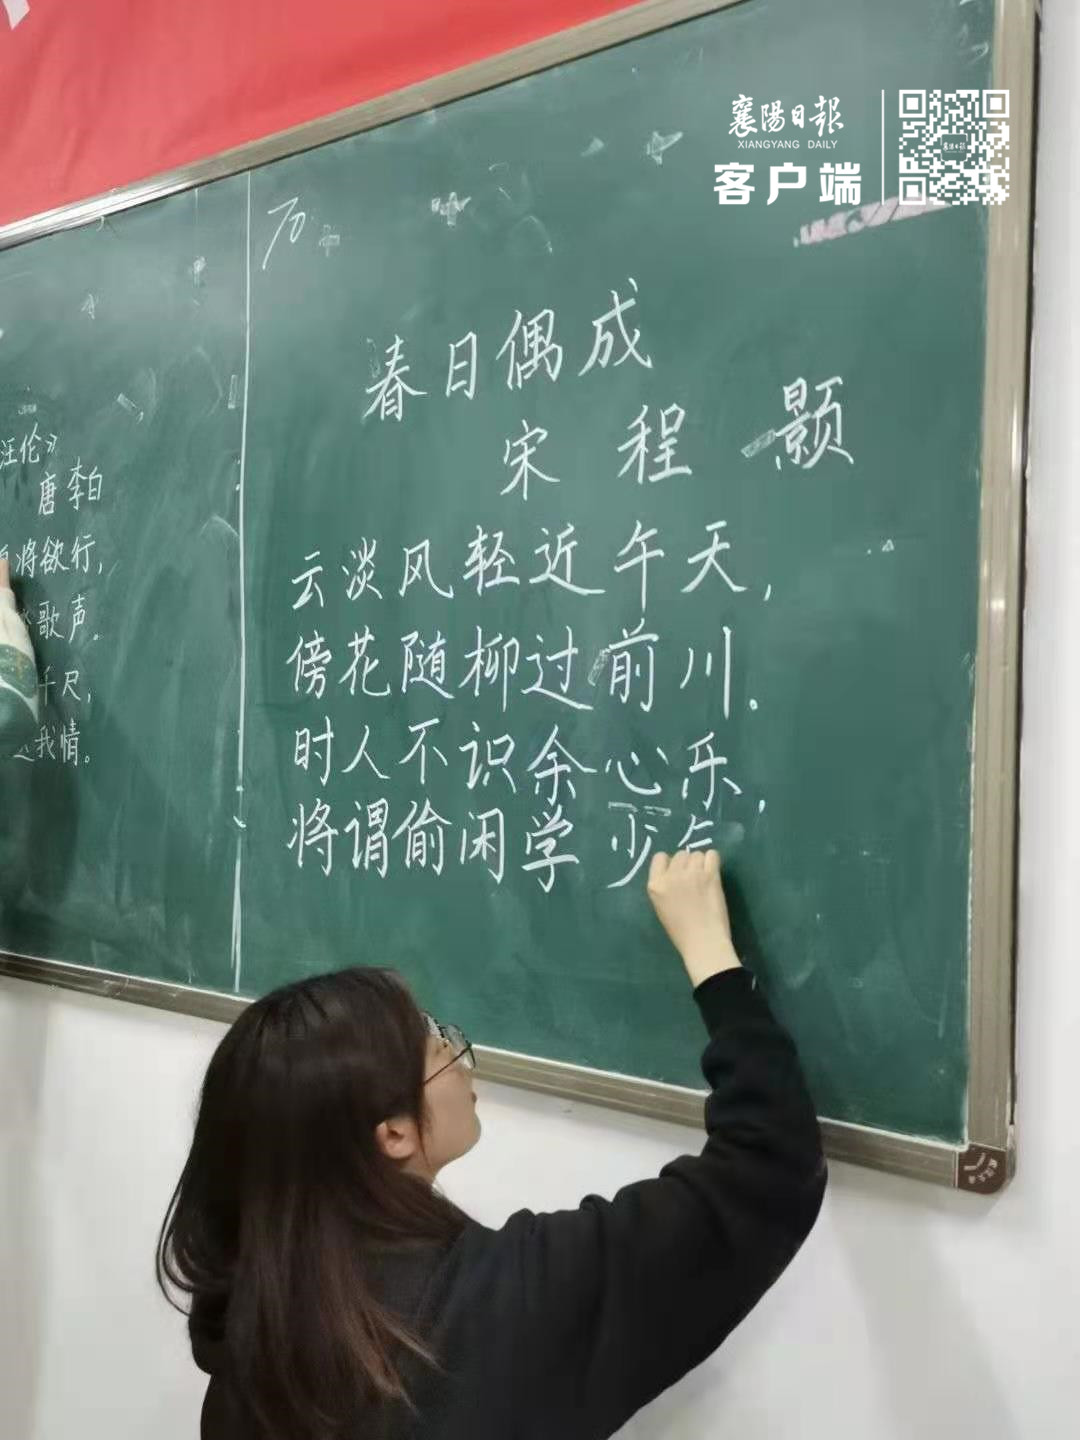 襄陽日報
XIANGYANG DAILY
客户端
70
春日偶成
宋 程 颢
云淡风轻近午天，
傍花随柳过前川.
时人不识余心乐，
将谓偷闲学少
汪伦》
唐 李白
将欲行，
歌声.
千尺，
我情。